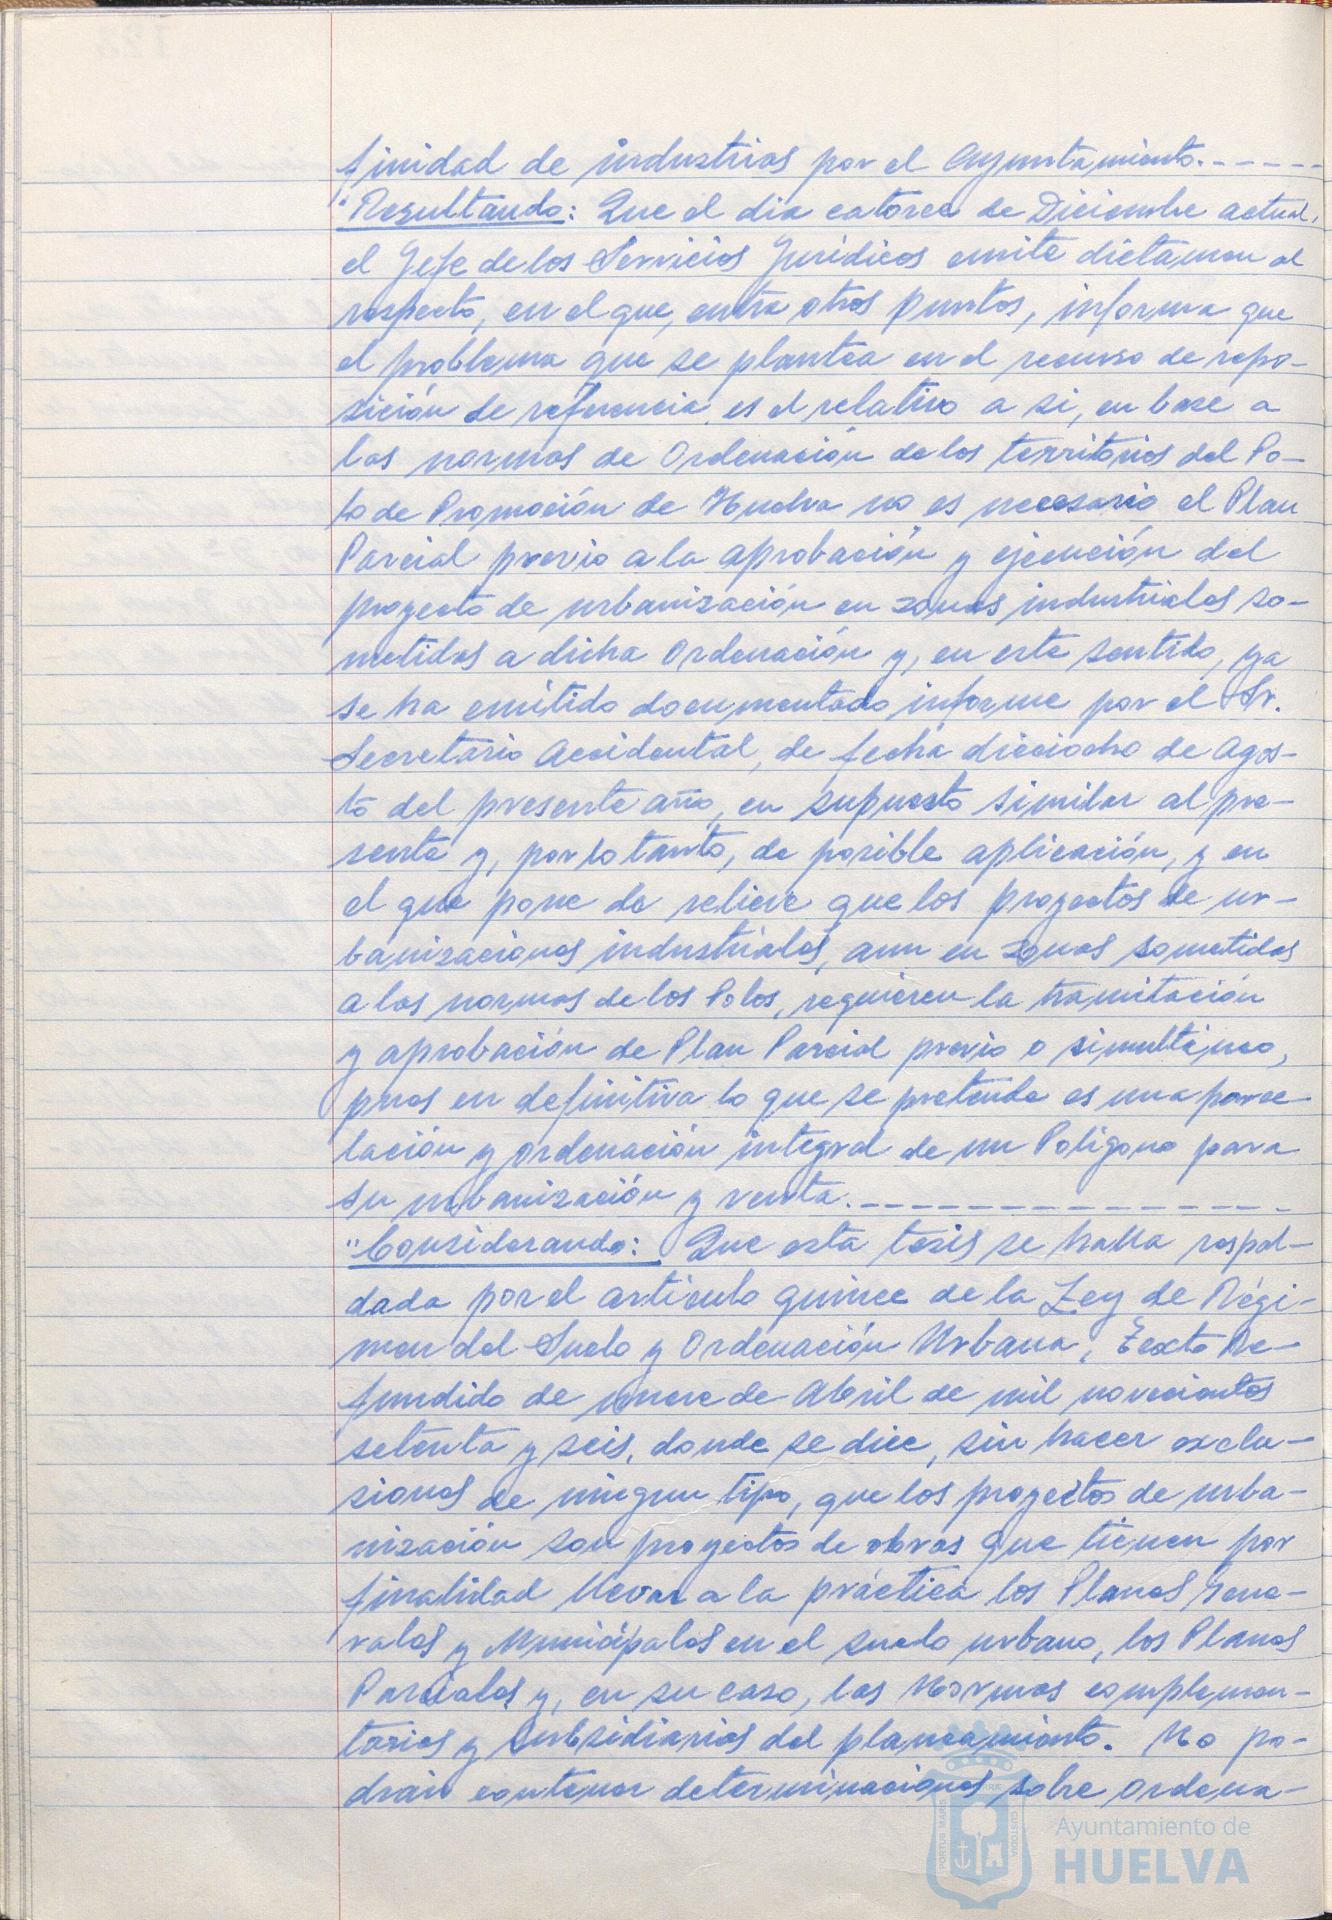 finidad de industrias por el Ayuntamiento.-----
"Resultando: Que el dia catorce de Diciembre actual,
el Jefe de los Servicios Jurídicos emite dictamen al
respecto, en el que, entre otros puntos, informa que
el problema que se plantea en el recurso de repo-
sición de referencia es el relativo a si, en base a
las normas de Ordenación de los territorios del Po-
lo de Promoción de Huelva no es necesario el Plan
Parcial previo a la aprobación y ejecución del
proyecto de urbanización en zonas industriales so-
metidas a dicha Ordenación y, en este sentido, ya
se ha emitido documentado informe por el Sr.
Secretario Accidental, de fecha dieciocho de Agos-
to del presente año, en supuesto similar al pre-
sente y, por lo tanto, de posible aplicación, y en
el que pone de relieve que los proyectos de ur-
banizaciones industriales, aun en zonas sometidas
a las normas de los Polos, requieren la tramitación
y aprobación de Plan Parcial previo o simultáneo,
pues en definitiva lo que se pretende es una parce-
lación y ordenación integral de un Polígono para
su urbanización y venta.--------------
"Considerando: Que esta tesis se halla respal-
dada por el artículo quince de la Ley de Régi-
men del Suelo y Ordenación Urbana, Texto Re-
fundido de nueve de Abril de mil novecientos
setenta y seis, donde se dice, sin hacer exclu-
siones de ningun tipo, que los proyectos de urba-
nización son proyectos de obras que tienen por
finalidad llevar a la práctica los Planes Gene-
rales y Municipales en el suelo urbano, los Planes
Parciales y, en su caso, las Normas complemen-
tarias y subsidiarias del planeamiento. No po-
drán contener determinaciones sobre ordena-
PORTUS MARIS
CUSTODIA
Ayuntamiento de
HUELVA